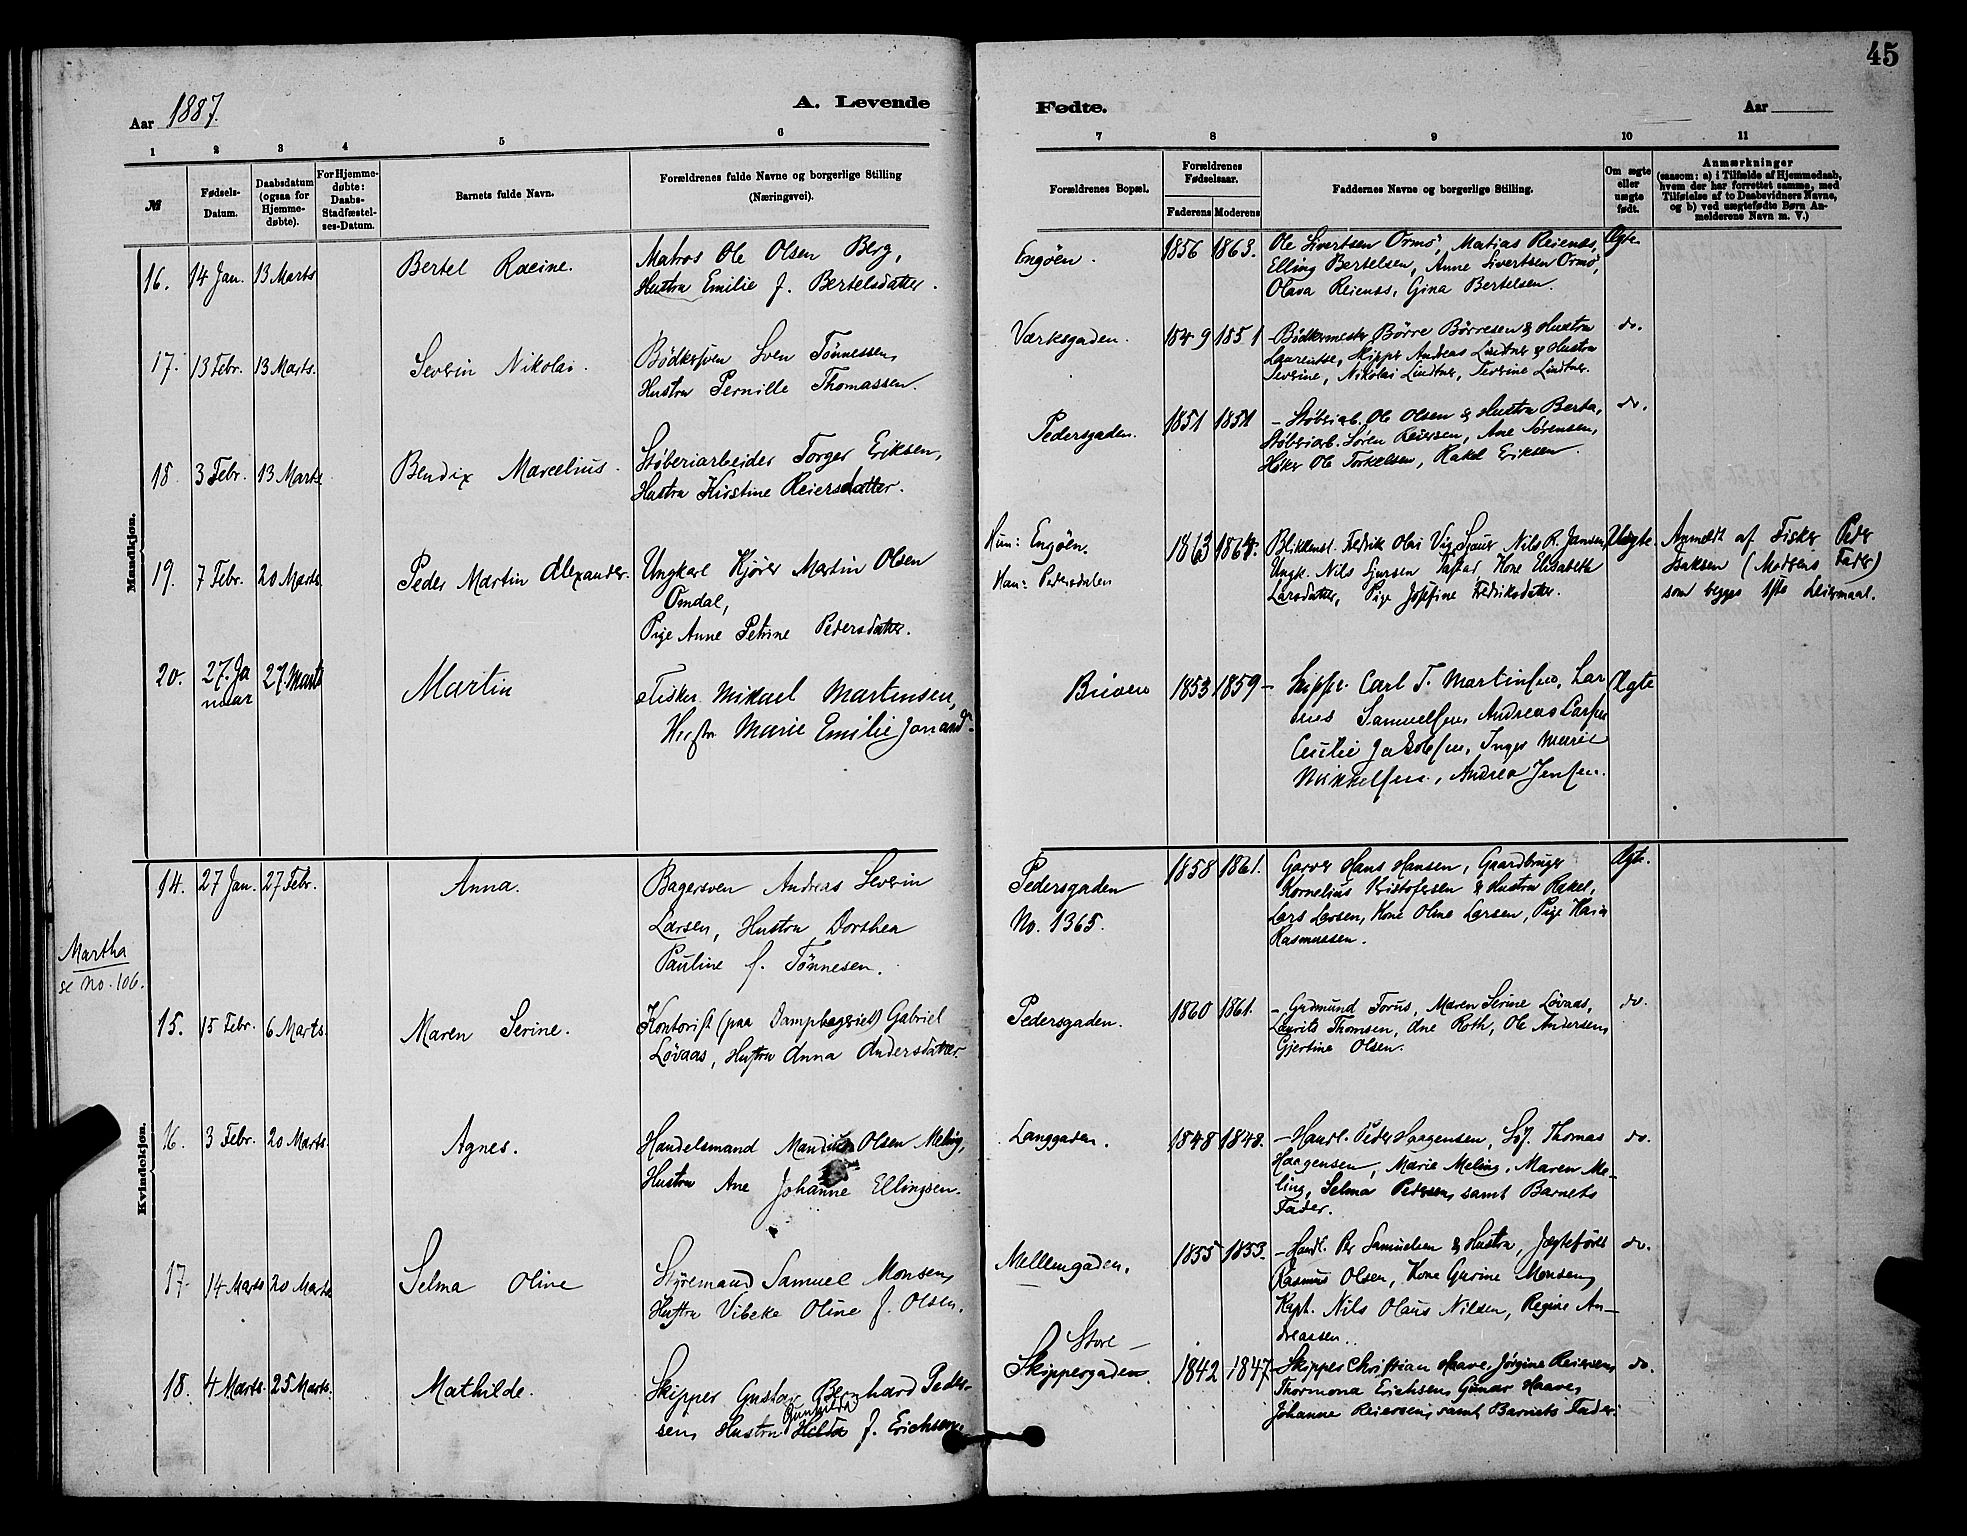 45
Aar 1887.
A. Levende
Fødte.
Aar
1 2 3 4 5 6 7 8 9 10 11
№
Fødsels-
Datum.
Daabsdatum
(ogsaa for
Hjemme-
døbte).
For Hjemme-
døbte:
Daabs-
Stadfæstel-
ses-Datum.
Barnets fulde Navn.
Forældrenes fulde Navne og borgerlige Stilling
(Næringsvei).
Forældrenes Bopæl.
Forældrenes
Fødselsaar.
Faderens Moderens
Faddernes Navne og borgerlige Stilling.
Om ægte
eller
uægte
født.
Anmærkninger
(saasom: a) i Tilfælde af Hjemmedaab,
hvem der har forrettet samme, med
Tilføielse af to Daabsvidners Navne,
og b) ved uægtefødte Børn An-
melderens Navn m. V.)
Mandkjøn.
16. 14 Jan. 13 Marts
Bertel Racine.
Matros Ole Olsen Berg,
Hustru Emilie f. Bertelsdatter.
Engøen.
1856 1863.
Ole Sivertsen Ormø, Matias Reienes,
Elling Bertelsen, Anne Sivertsen Ormø,
Olava Reienes, Gina Bertelsen.
Ægte.
17. 13 Febr. 13 Marts.
Severin Nikolai.
Bødkersven Sven Tönnessen,
Hustru Pernille Thomassen.
Værksgaden.
1849 1851
- Bødkermester Børre Børresen & Hustru
Laurentse, Skipper Andreas Lindtner & Hustru
Severine, Nikolai Lindtner, Severine Lindtner.
do.
18. 3 Febr. 13 Marts
Bendix Marcelius.
Støberiarbeider Torger Eriksen,
Hustru Kirstine Reiersdatter.
Pedersgaden.
1851 1851
- Støberiarb. Ole Olsen & Hustru Berta,
Støberiarb. Søren Reiersen, Ane Sørensen,
Høker Ole Torkelsen, Rakel Eriksen.
do.
19. 7 Febr. 20 Marts
Peder Martin Alexander.
Ungkarl Kjører Martin Olsen
Omdal,
Pige Anne Petrine Pedersdatter.
Hun: Engøen.
Han: Pedersdalen
1863 1864.
Blikkensl. Fredrik Olai Nils R. Jansen,
Ungk. Nils Sjursen Tastad, Kone Elisabeth
Larsdatter, Pige Josefine Fredriksdatter.
Uægte.
Anmeldt af Fisker Peder
Isaksen (Moderens Fader)
som begges 1ste Leiermaal.
20. 27. Ja
nuar
27. Marts
Martin
Fisker Mikael Martinsen,
Hustr Marie Emilie Jonasd.
Bueven
1853 1859
- Skipper Carl T. Martinsen, Lar
sens Samuelsen, Andreas Carlsen
Cecilie Jakobsen, Inger Marie
Mikkelsen, Andrea Jensen.
Ægte
Kvindekjøn.
14. 27 Jan. 27 Febr.
Anna.
Bagersven Andreas Severin
Larsen, Hustru Dorthea
Pauline f. Tönnesen.
Pedersgaden
No. 1365.
1858 1861.
Garver Hans Hansen, Gaardbruger
Kornelius Kristofersen & Hustru Rakel,
Lars Larsen, Kone Oline Larsen, Pige Maria
Rasmussen.
Ægte.
Martha
se No. 106.
15. 15 Febr. 6 Marts
Maren Serine.
Kontorist (paa Dampbageriet) Gabriel
Løvaas, Hustru Anna Andersdatter
Pedersgaden.
1860 1861.
- Gudmund Forus, Maren Serine Løvaas,
Laurits Thomsen, dne Roth, Ole Andersen,
Gjertine Olsen.
do.
16. 3 Febr. 20 Marts.
Agnes.
Handelsmand Mandius Olsen Meling,
Hustru Ane Johanne Ellingsen.
Langgaden.
1848 1848.
- Handl. Peder Haagensen, Søf. Thomas
Haagensen, Marie Meling, Maren Me-
ling, Selma Pedersen, samt Barnets
Fader.
do.
17. 14 Marts 20 Marts
Selma Oline
Styremand Samuel Monsen,
Hustru Vibeke Oline f. Olsen.
Mellemgaden.
1855 1853.
- Handl. Per Samuelsen & Hustru, Jægtefører
Rasmus Olsen, Kone Gurine Monsen,
Kapt. Nils Olaus Nilsen, Regine An-
dreassen.
do.
18. 4 Marts. 25 Marts.
Mathilde.
Skipper Gustav Bernhard Peder-
sen, Hustru Hilda Gunhilda f. Erichsen.
Store
Skippergaden.
1842 1847
- Skipper Christian Haave, Jørgine Reiersen,
Thormona Erichsen, Gunar Haave,
Johanne Reiersen, samt Barnets Fader.
do.